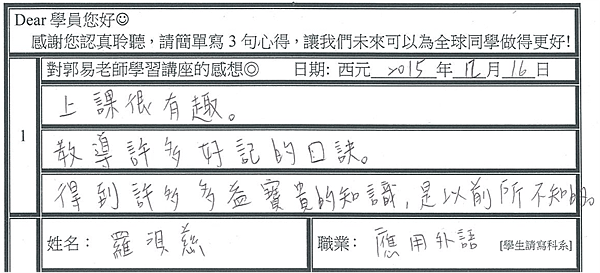 Dear 學員您好☺
感謝您認真聆聽，請簡單寫 3 句心得，讓我們未來可以為全球同學做得更好!
對郭易老師學習講座的感想◎ 日期: 西元 2015 年 12 月 16 日
1
上課很有趣。
教導許多好記的口訣。
得到許多多益寶貴的知識，是以前所不知的。
姓名： 羅 慈 職業： 應用外語 [學生請寫科系]